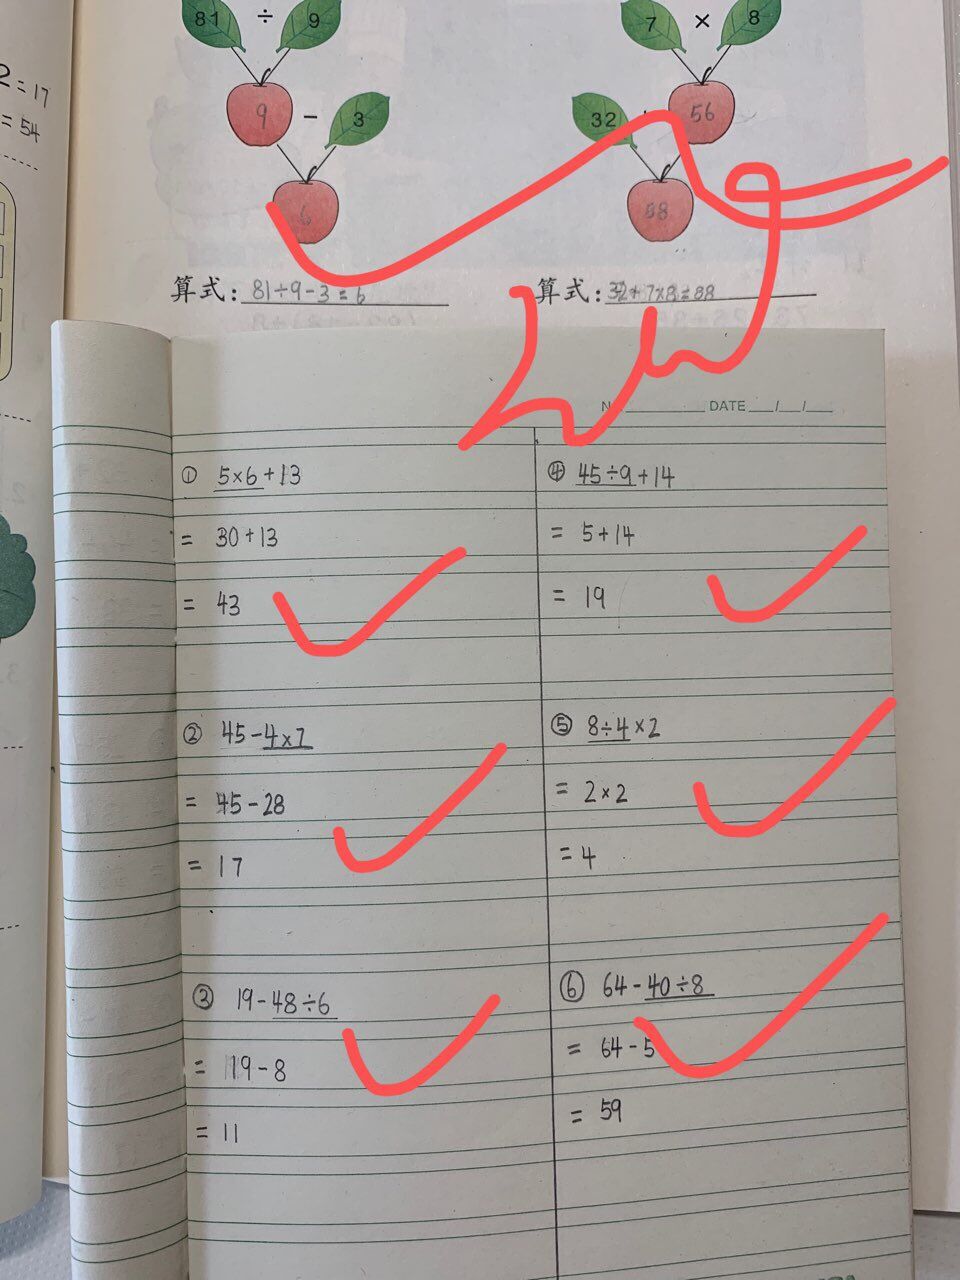 2=17
=54
81 ÷ 9
9 - 3
6
算式: 81÷9-3=6
7 × 8
32 + 56
88
算式: 32+7×8=88
No. DATE / /
① 5×6+13
= 30+13
= 43
② 45-4×7
= 45-28
= 17
③ 19-48÷6
= 19-8
= 11
④ 45÷9+14
= 5+14
= 19
⑤ 8÷4×2
= 2×2
= 4
⑥ 64-40÷8
= 64-5
= 59